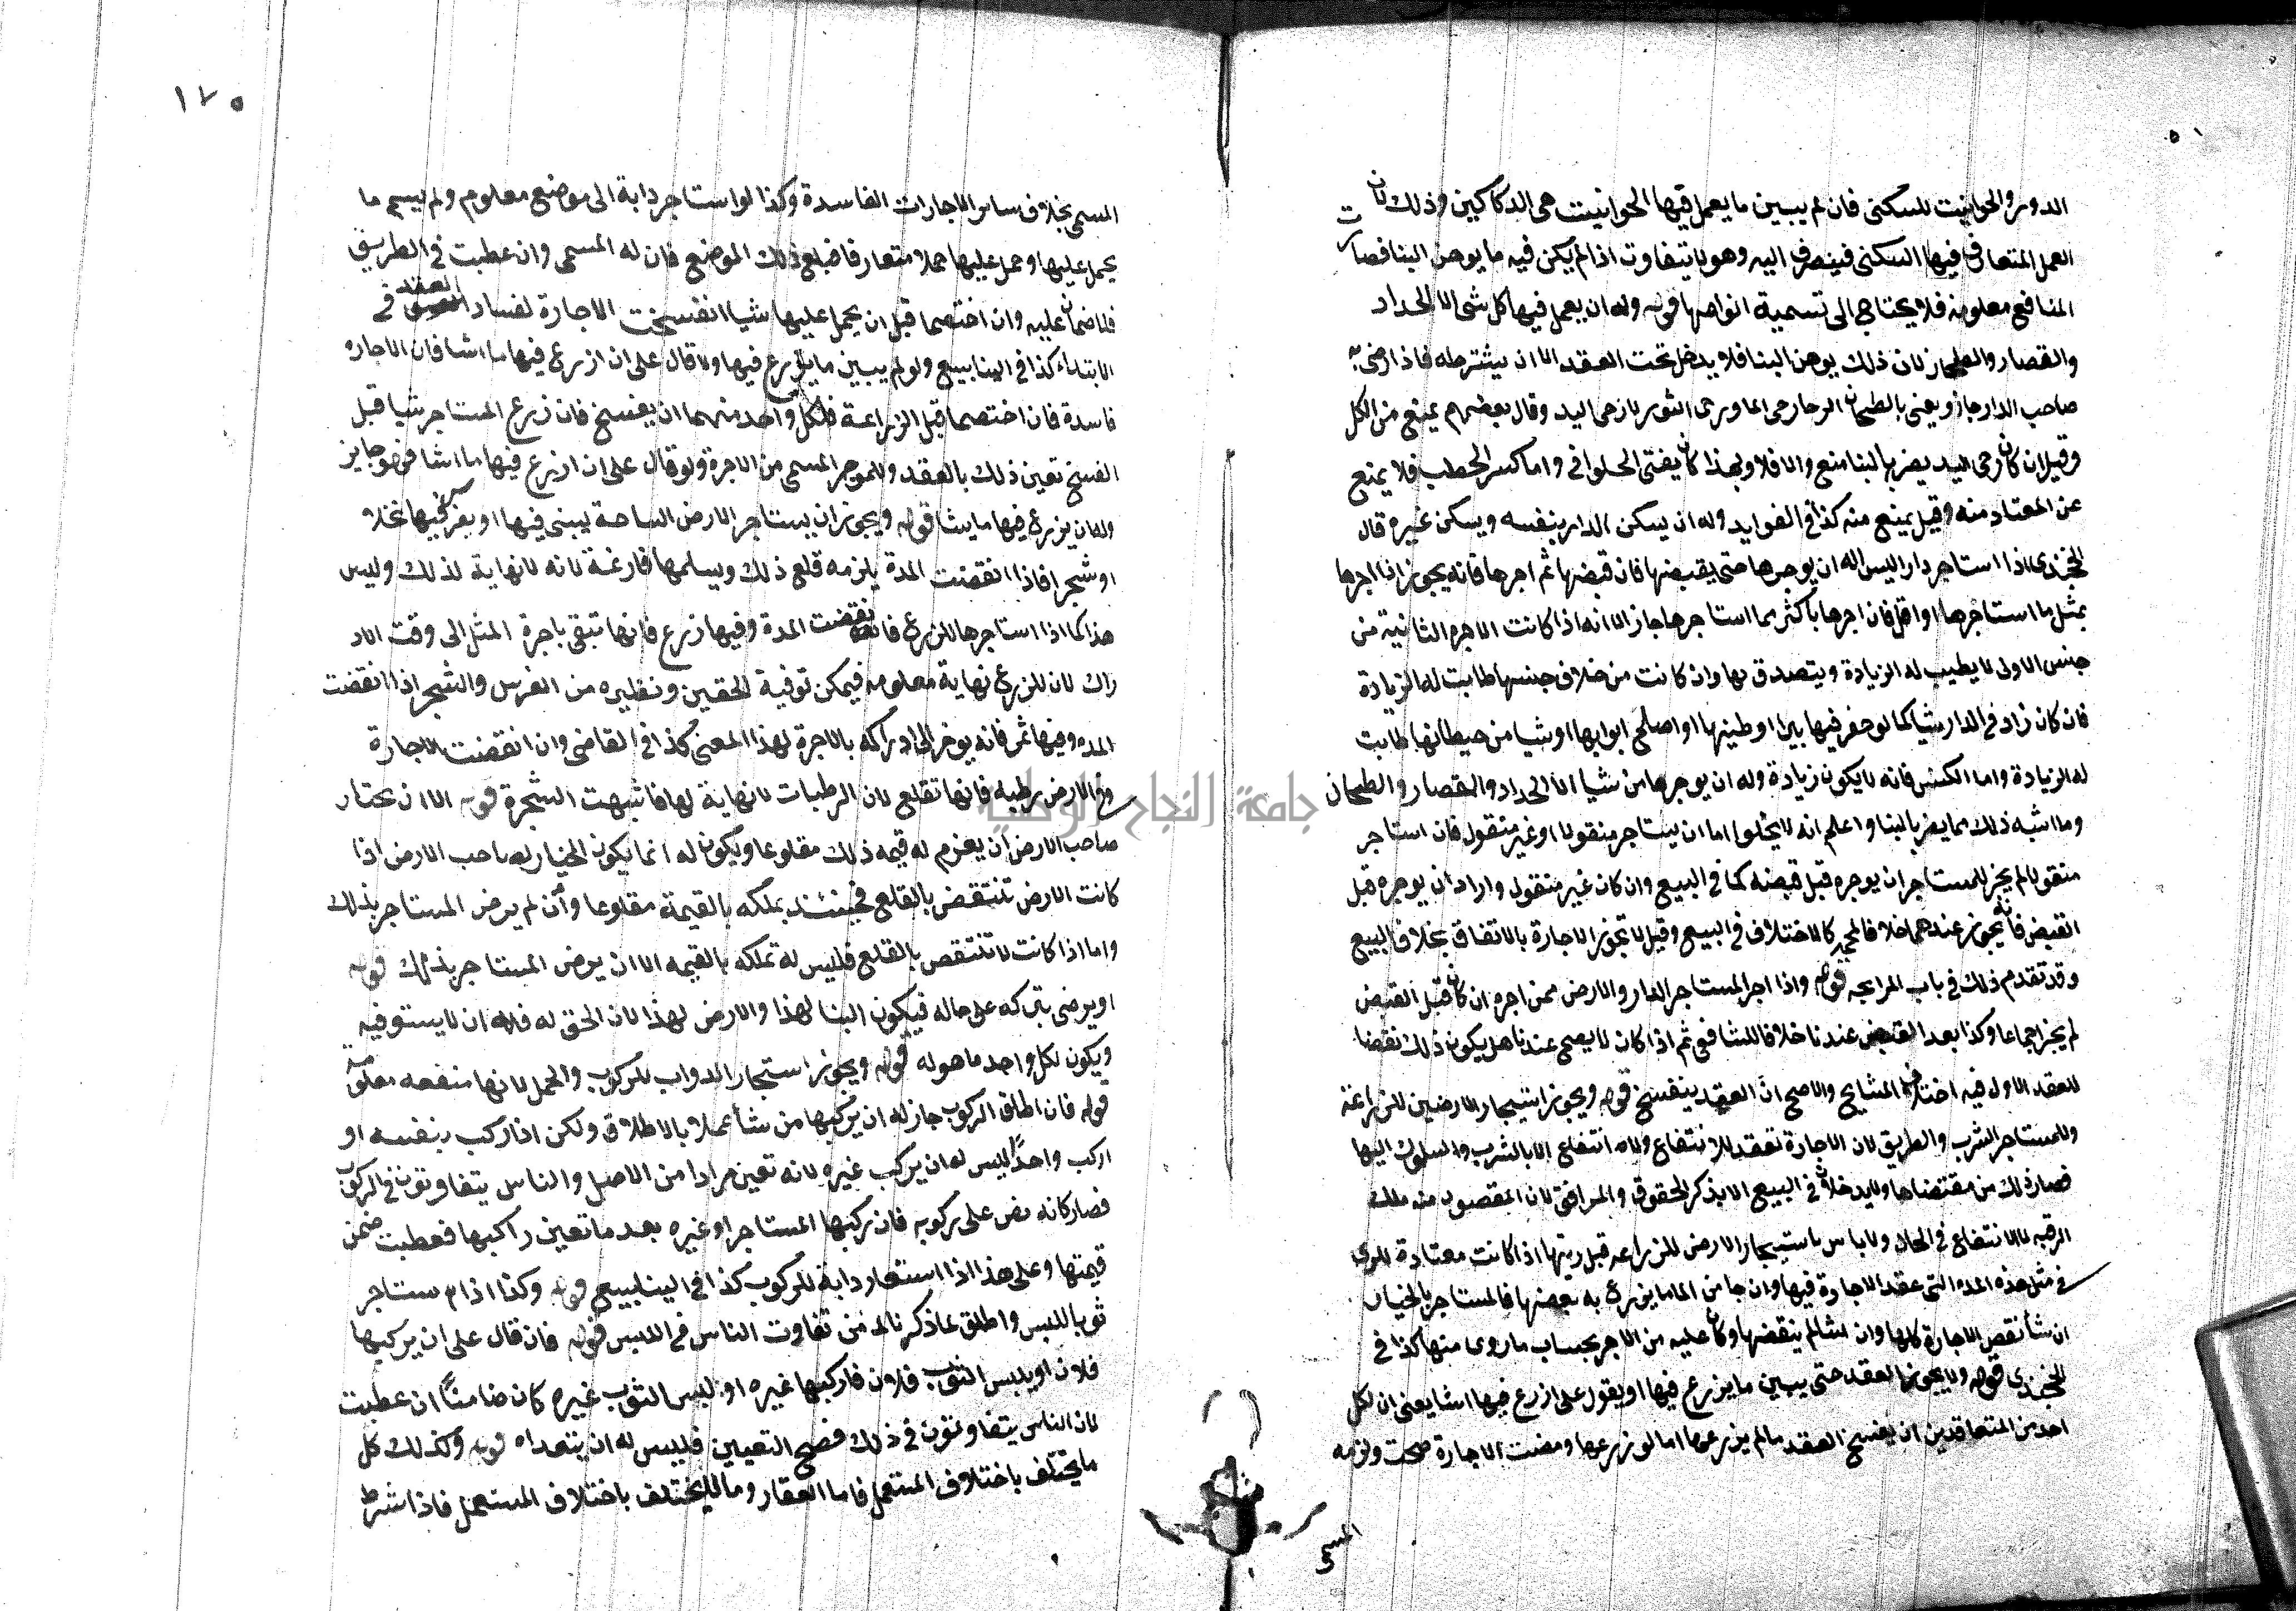 الدور والحوانيت للسكنى فان لم يبين ما يعمل فيها الحوانيت هي الدكاكين وذلك لان
العمل المتعارف فيها السكنى فينصرف اليه وهو لا يتفاوت اذا لم يكن فيه ما يوهن البنا فصارت
المنافع معلومة فلا يحتاج الى تسمية انواعها قوله وله ان يعمل فيها كل شى الا الحداد
والقصار والطحان لان ذلك يوهن البنا فلا يدخل تحت العقد الا ان يشترطه فاذا رضى به
صاحب الدار جاز ويعنى بالطحان الرحا رحى الما ورحى الثور لا رحى اليد وقال بعضهم يمنع من الكل
وقيل ان كان رحى اليد يضر بالبنا منع والا فلا وبهذا كان يفتى الحلوانى واما كسر الحطب فلا يمنع
عن المعتاد منه وقيل يمنع منه كذا فى الفوايد وله ان يسكن الدار بنفسه ويسكن غيره قال
الخجندى اذا استاجر دارا ليس له ان يوجرها حتى يقبضها فان قبضها ثم اجرها فانه يجوز اذا اجرها
بمثل ما استاجرها او اقل فان اجرها باكثر مما استاجرها جاز الا انه اذا كانت الاجره الثانية من
جنس الاولى لا يطيب له الزيادة ويتصدق بها وان كانت من خلاف جنسها طابت له الزيادة
فان كان زاد فى الدار شيا كما لو حفر فيها بيرا او طينها او اصلح ابوابها او شيا من حيطانها طابت
له الزيادة واما الكنس فانه لا يكون زيادة وله ان يوجرها من شيا الا الحداد والقصار والطحان
وما اشبه ذلك مما يضر بالبنا واعلم انه لا يخلوا اما ان يستاجر منقولا او غير منقول فان استاجر
منقولا لم يجز للمستاجر ان يوجره قبل قبضه كما فى البيع وان كان غير منقول واراد ان يوجره قبل
القبض فانه يجوز عندهما خلافا لمحمد كالاختلاف فى البيع وقيل لا تجوز الاجارة بالاتفاق بخلاف البيع
وقد تقدم ذلك فى باب المرابحه قوله واذا اجر المستاجر الدار والارض ممن اجره ان كان قبل القبض
لم يجز اجماعا وكذا بعد القبض عندنا خلافا للشافعى ثم اذا كان لا يصح عندنا هل يكون ذلك نقضا
للعقد الاول فيه اختلاف المشايخ والاصح ان العقد ينفسخ قوله ويجوز استيجار الارضين للزراعة
وللمستاجر الشرب والطريق لان الاجارة تعقد للانتفاع ولا انتفاع الا بالشرب والسلوك اليها
فصار ذلك من مقتضاها ولا يدخلان فى البيع الا بذكر الحقوق والمرافق لان المقصود منه ملك
الرقبه لا الانتفاع فى الحال ولا باس باستيجار الارض للزراعه قبل ريها اذا كانت معتادة للرى
فى مثل هذه المده التى عقد الاجارة فيها وان جا من الما ما يزرع به بعضها فالمستاجر بالخيار
ان شا نقض الاجارة كلها وان شا لم ينقضها وكان عليه من الاجر بحساب ما روى منها كذا فى
الخجندى قوله ولا يجوز العقد حتى يبين ما يزرع فيها او يقول على ان ازرع فيها ما شا يعنى ان لكل
احد من المتعاقدين ان يفسخ العقد ما لم يزرعها اما لو زرعها ومضت الاجارة صحت ولزمه
المسمى
١٧٥
المسمى بخلاف ساير الاجارات الفاسدة وكذا لو استاجر دابة الى موضع معلوم ولم يسم ما
يحمل عليها وحمل عليها حملا متعارفا فبلغ ذلك الموضع فان له المسمى وان عطبت فى الطريق
فلا ضمان عليه وان اختصما قبل ان يحمل عليها شيا انفسخت الاجارة لفساد العقد فى
الابتداء كذا فى الينابيع ولو لم يبين ما يزرع فيها ولا قال على ان ازرع فيها ما اشا فان الاجاره
فاسدة فان اختصما قبل الزراعة فلكل واحد منهما ان يفسخ فان زرع المستاجر شيا قبل
الفسخ تعين ذلك بالعقد وللموجر المسمى من الاجرة ولو قال على ان ازرع فيها ما اشا فهو جايز
وله ان يزرع فيها ما يشا قوله ويجوز ان يستاجر الارض الساحة ليبنى فيها او يغرس فيها نخلا
او شجرا فاذا انقضت المدة يلزمه قلع ذلك ويسلمها فارغة لانه لا نهاية لذلك وليس
هذا كما اذا استاجرها للزرع فانقضت المدة وفيها زرع فانها تبقى باجرة المثل الى وقت الاد
راك لان للزرع نهاية معلومه فيمكن توفية الحقين ونظيره من الغرس والشجر اذا انقضت
المده وفيها ثمر فانه يوخر الى ادراكه بالاجرة لهذا المعنى كذا فى القاضى وان انقضت الاجارة
وفى الارض رطبه فانها تقلع لان الرطبات لا نهاية لها فاشبهت الشجرة قوله الا ان يختار
صاحب الارض ان يغرم له قيمه ذلك مقلوعا ويكون له انما يكون الخيار لصاحب الارض اذا
كانت الارض تنتقض بالقلع فحينئذ يملكه بالقيمة مقلوعا وان لم يرض المستاجر بذلك
واما اذا كانت لا تنتقص بالقلع فليس له تملكه بالقيمه الا ان يرض المستاجر بذلك قوله
او يرضى بتركه على حاله فيكون البنا لهذا والارض لهذا لان الحق له فله ان لا يستوفيه
ويكون لكل واحد ما هو له قوله ويجوز استيجار الدواب للركوب والحمل لانها منفعه معلومة
قوله فان اطلق الركوب جاز له ان يركبها من شا عملا بالاطلاق ولكن اذا ركب بنفسه او
اركب واحدا ليس له ان يركب غيره لانه تعين مرادا من الاصل والناس يتفاوتون فى الركوب
فصار كانه نص على ركوبه فان ركبها المستاجر او غيره بعد ما تعين راكبها فعطبت ضمن
قيمتها وعلى هذا اذا استعار دابة للركوب كذا فى الينابيع قوله وكذا اذا استاجر
ثوبا للبس واطلق لما ذكرنا من تفاوت الناس فى اللبس قوله فان قال على ان يركبها
فلان او يلبس الثوب فلان فاركبها غيره او البس الثوب غيره كان ضامنا ان عطبت
لان الناس يتفاوتون فى ذلك فصح التعيين فليس له ان يتعداه قوله وكذلك كل
ما يختلف باختلاف المستعمل فاما العقار وما لا يختلف باختلاف المستعمل فاذا شرط
جامعة النجاح الوطنية